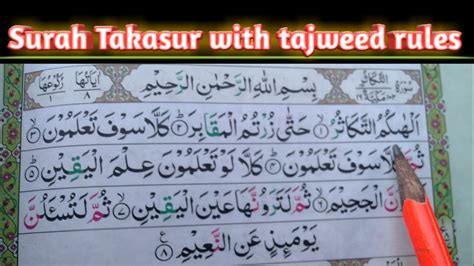 Surah Takasur with tajweed rules
سورة التكاثر مكية اياتها ٨ ركوعها ١
بِسْمِ اللّٰهِ الرَّحْمٰنِ الرَّحِيْمِ
اَلْهٰىكُمُ التَّكَاثُرُ ۱ حَتّٰى زُرْتُمُ الْمَقَابِرَ ۲ كَلَّا سَوْفَ تَعْلَمُوْنَ ۳
ثُمَّ كَلَّا سَوْفَ تَعْلَمُوْنَ ۴ كَلَّا لَوْ تَعْلَمُوْنَ عِلْمَ الْيَقِيْنِ ۵
الْجَحِيْمَ ۶ ثُمَّ لَتَرَوُنَّهَا عَيْنَ الْيَقِيْنِ ۷ ثُمَّ لَتُسْـَٔلُنَّ
يَوْمَىِٕذٍ عَنِ النَّعِيْمِ ۸